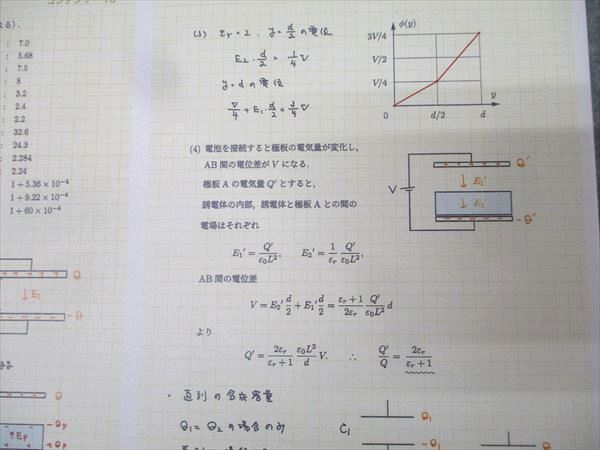 コンデンサー
による).
: 7.0
: 5.68
: 7.5
: 8
: 3.2
: 2.4
: 2.2
: 32.6
: 24.3
: 2.284
: 2.24
1+5.36×10⁻⁴
1+9.22×10⁻⁴
1+60×10⁻⁴
Q
↓E₁
-Q
(3) εr=2. y=d/2の電位
E₂・d/2 = 1/4 V
y=dの電位
V/4 + E₁・d/2 = 3/4 V
φ(y)
3V/4
V/2
V/4
0 d/2 d y
(4) 電池を接続すると極板の電気量が変化し,
AB間の電位差がVになる.
極板Aの電気量Q′とすると,
誘電体の内部, 誘電体と極板Aとの間の
電場はそれぞれ
E₁′=Q′/ε₀L², E₂′=1/εr Q′/ε₀L²,
AB間の電位差
V=E₂′d/2+E₁′d/2=εr+1/2εr Q′/ε₀L² d
より
Q′=2εr/εr+1 ε₀L²/d V. ∴ Q′/Q=2εr/εr+1
V
Q′
↓E₁′
↓E₂′
-Q′
・直列の合成容量
Q₁=Q₂の場合のみ
C₁
Q₁
-Q₁
Q
-Qp
↑Ep
+Qp